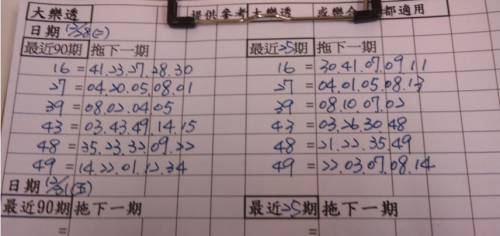 大樂透 提供參考大樂透 或樂合 都適用
日期 12/28(二)
最近90期 拖下一期 最近25期 拖下一期
16 = 41.23.27.28.30 16 = 30.41.07.09.11
27 = 04.20.05.08.01 27 = 04.01.05.08.13
39 = 08.02.04.05 39 = 08.10.07.02
43 = 03.43.49.14.15 43 = 03.26.30.48
48 = 35.23.32.09.22 48 = 21.22.35.49
49 = 14.22.01.12.34 49 = 22.03.07.08.14
日期 12/31(五)
最近90期 拖下一期 最近25期 拖下一期
= =